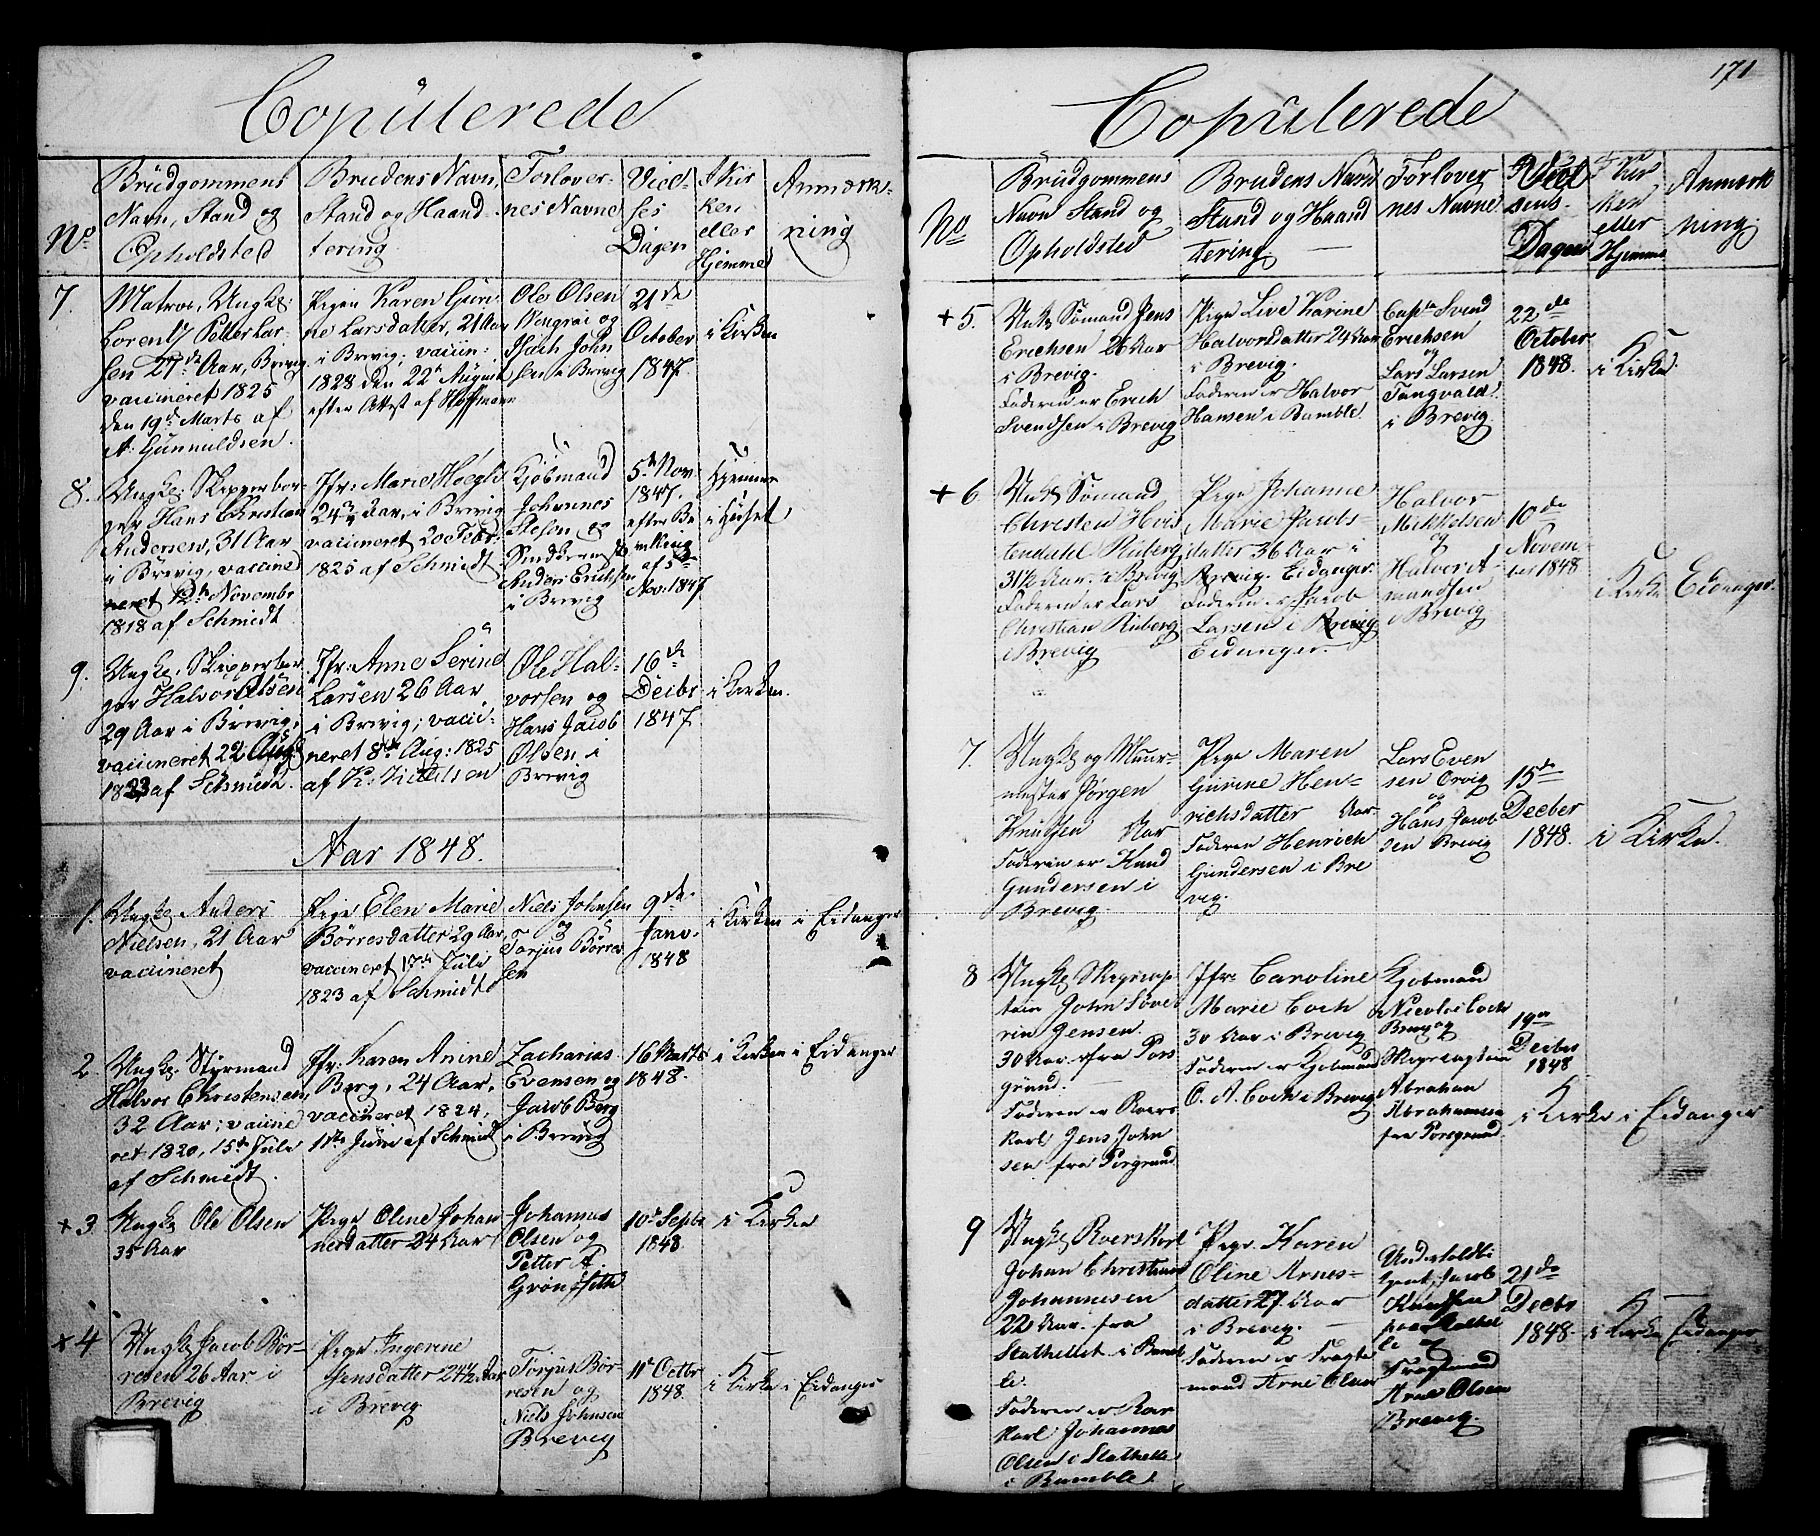 Copulerede
No
Brudgommens
Navn, Stand og
Opholdsted
Brudens Navn,
Stand og Haand-
tering
Forlover-
nes Navne
Viel-
ses
Dagen
I Kir
ken
eller
Hjemme
Anmærk-
ning
7.
Matros, Ungk:
Lorentz Petter Lar-
sen 27 Aar, Brevig
vaccineret 1825
den 19de Marts af
A. Gunnuldsen.
Pigen Karen Guri-
ne Larsdatter, 21 Aar
i Brevig; vaccin:
1828 den 22de August
efter Attest af Hoffmann
Ole Olsen
og
Isach John
sen i Brevig
21de
October
1847.
i Kirken
8.
Ungk: Skipperbor-
ger Hans Christian
Andersen, 31 Aar
i Brevig, vaccine
neret 12te Novembr
1818 af Schmidt
Jfr: Marie Høegh
24 Aar, i Brevig
vaccineret 20 Febr
1825 af Schmidt
Kjøbmand
Johannes
og
Anders Erichsen
i Brevig
5te Nov
1847.
efter Be
villing
af 5te
Nov: 1847
Hjemme
i Huset
9.
Ungk: Skipperbor
ger Halvor Olsen
29 Aar i Brevig,
vaccineret 22 Aug
1823 af Schmidt.
Jfr: Anne Serine
Larsen 26 Aar
i Brevig; vacci-
neret 8de Aug: 1825
af K. Nielsen
Ole Hal-
vorsen og
Hans Jacob
Olsen i
Brevig
16de
Decbr
1847.
i Kirken.
Aar 1848.
1.
Ungk: Anders
Nielsen, 21 Aar
vaccineret
Pige Elen Marie
Börresdatter 29 Aar
vaccineret 17de Juli
1823 af Schmidt
Niels Johnsen
og
Torjus Börre
sen
9de
Janv.
1848
i Kirken i Eidanger
2
Ungk: Styrmand
Halvor Christensen,
32 Aar; vaccine
ret 1820, 15de Juli
af Schmidt.
Jfr: Karen Anine
Berg, 24 Aar,
vaccineret 1824,
11te Juni af Schmidt
Zacharias
Evensen og
Jacob Berg
i Brevig
16 Marts
1848.
i Kirken i Eidanger
+ 3
Ungk: Ole Olsen
35 Aar
Pige Oline Johan
nesdatter 24 Aar
Johannes
Olsen og
Petter A.
Grönseth
10de Septbr
1848.
i Kirke
+ 4
Ungk: Jacob Bör-
resen 26 Aar i
Brevig
Pige Ingerine
Jensdatter 24½ Aar
i Brevig
Torjus Bör-
resen og
Niels Johnsen
Brevig
11te Octbr
1848.
i Kirke i Eidanger
171
Copulerede
No
Brudgommens
Navn Stand og
Opholdsted
Brudens Navn
Stand og Haand
tering
Forlover
nes Navne
Viel
sens.
Dagen
I Kir
ken
eller
Hjemme
Anmærk
ning.
+ 5.
Unk: Sømand Jens
Erichsen 26 Aar
i Brevig.
Faderen er Erich
Svendsen i Brevig
Pige Live Karine
Halvorsdatter 24 Aar
i Brevig.
Faderen er Halvor
Hansen i Bamble.
Capt. Svend
Erichsen
og
Lars Larsen
Tangvald
i Brevig.
22de
October
1848.
i Kirke.
+ 6
Unk: Sømand
Christen Hvis
tendahl Ruberg
31½ Aar i Brevig
Faderen er Lars
Christian Ruberg
i Brevig
Pige Johanne
Marie Jacobs-
datter 36 Aar i
Brevig. Eidanger
Faderen er Jacob
Larsen i Brevig
Eidanger.
Halvor
Mikkelsen
og
Halvor A-
mundsen
i Brevig
10de
Novem-
ber 1848
i Kirke
Eidanger.
7.
Ungk: og Muur-
mester Jørgen
Knudsen Aar
Faderen er Knud
Gundersen i
Brevig.
Pige Maren
Gurine Hen-
richsdatter Aar.
Faderen Henrich
Gundersen i Bre
vig.
Lars Even
sen Orvig
og
Hans Jacob
sen Brevig
15de
Decber
1848.
i Kirke.
8
Ungk: Skipscap-
tain John Søve
rin Jensen.
30 Aar fra Pors
grund.
Faderen er Roers
karl Jens John
sen fra Porsgrund
Jfr: Caroline
Marie Coch
30 Aar i Brevig
Faderen er Kjøbmand
O. A. Coch i Brevig
Kjøbmand
Nicolai Coch
Brevig og
Skipscaptain
Abraham
Abrahamsen
fra Porsgrund.
19de
Decbr
1848
i Kirke i Eidanger
9
Ungk: Roerskarl
Johan Christian
Johannesen
22 Aar. fra
Stathellet i Bamb
le.
Faderen er Roer
karl Johannes
Olsen i Stathelle
i Bamble.
Pige Karen
Oline Arnes-
datter 27 Aar
i Brevig.
Faderen er Fragte
mand Arne Olsen
Jacob
Knudsen
paa Stathel
le og
Fragtemand
Arne Olsen
Brevig.
21de
Decbr
1848.
i Kirke
Eidanger